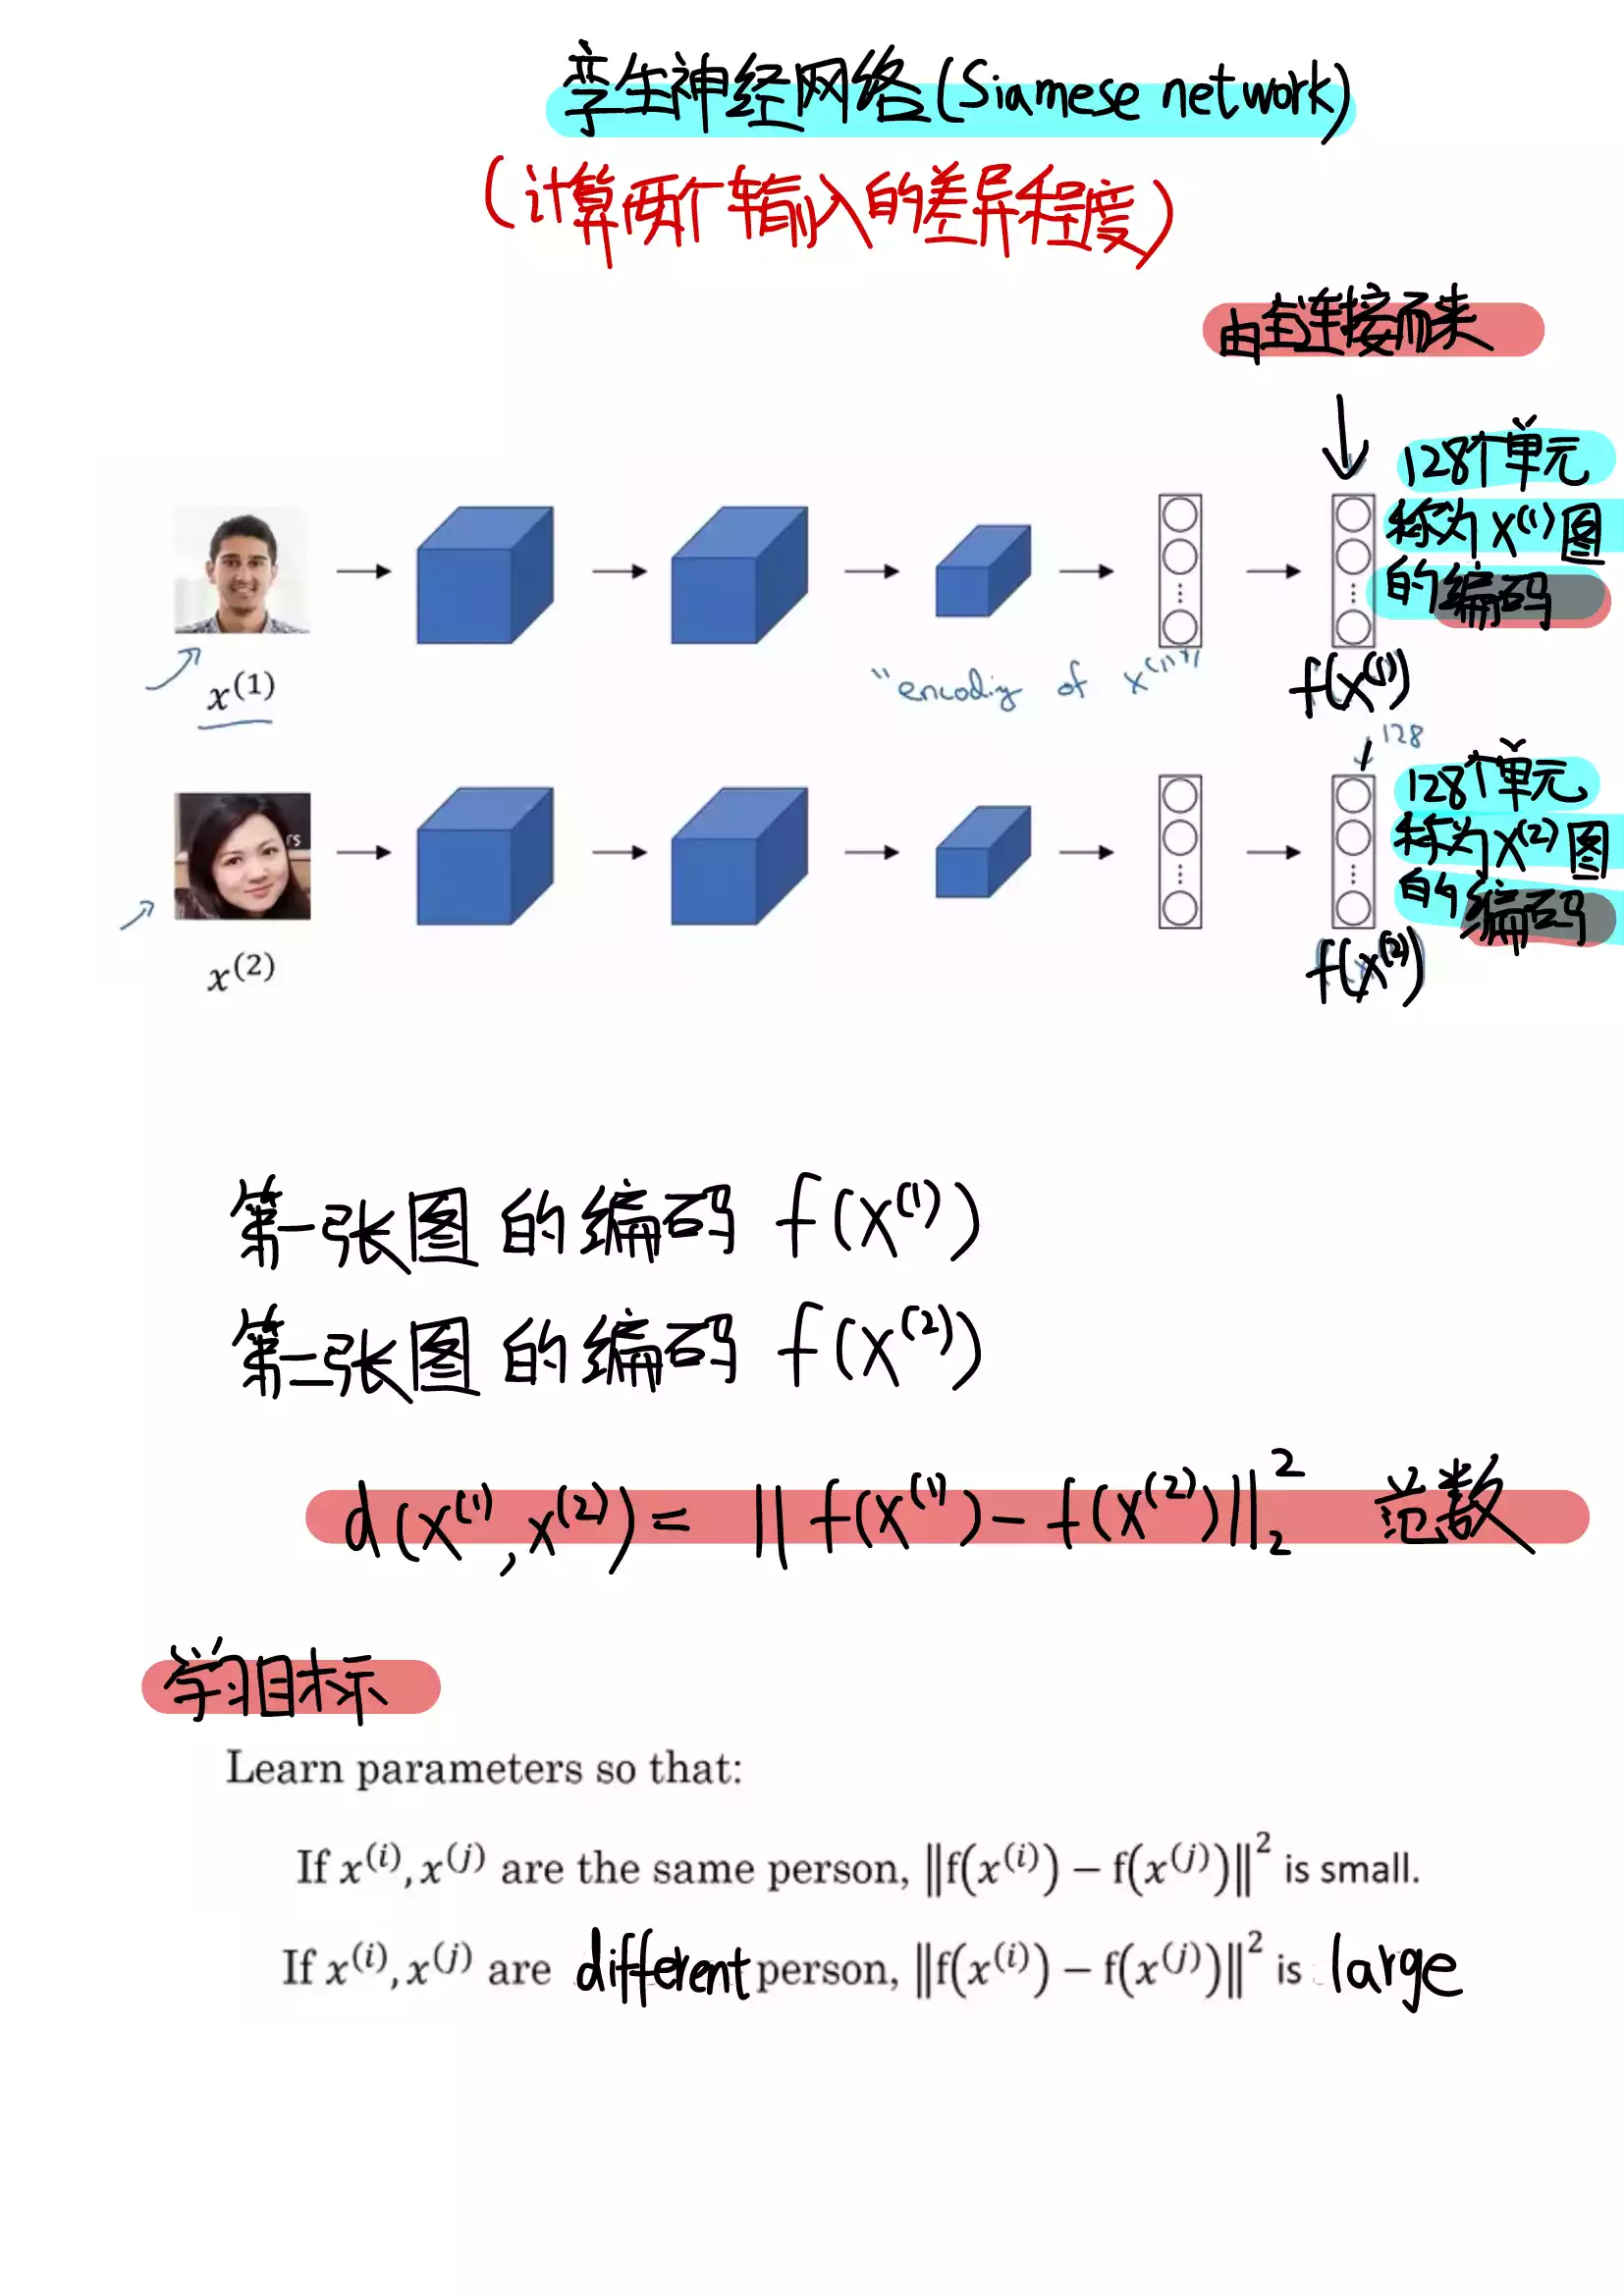 孪生神经网络(Siamese network)
(计算两个输入的差异程度)
由全连接而来
128个单元
称为X⁽¹⁾图
的编码
x⁽¹⁾
"encoding of x⁽¹⁾"
f(x⁽¹⁾)
128
128个单元
称为X⁽²⁾图
的编码
rs
x⁽²⁾
f(x⁽²⁾)
第一张图的编码 f(X⁽¹⁾)
第二张图的编码 f(X⁽²⁾)
d(X⁽¹⁾,X⁽²⁾)= ||f(X⁽¹⁾)-f(X⁽²⁾)||₂² 范数
学习目标
Learn parameters so that:
If x⁽ⁱ⁾, x⁽ʲ⁾ are the same person, ‖f(x⁽ⁱ⁾) − f(x⁽ʲ⁾)‖² is small.
If x⁽ⁱ⁾, x⁽ʲ⁾ are different person, ‖f(x⁽ⁱ⁾) − f(x⁽ʲ⁾)‖² is large